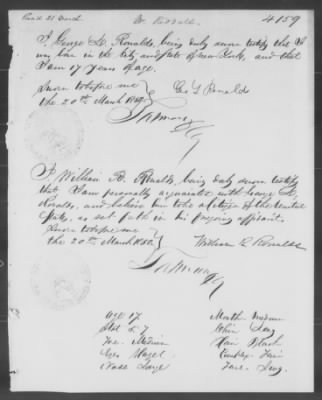 4159
I George L. Ronalds, being duly sworn testify that I
was born in the City and State of New York, and that
I am 17 years of age.
Sworn to before me
the 20th March 1860
Geo L Ronalds
I William R. Ronalds, being duly sworn testify
that I am personally acquainted with George L.
Ronalds, and believe him to be a citizen of the United
States, as set forth in his foregoing affidavit.
Sworn to before me
the 20th March 1860
William R Ronalds
Age 17
Stat 5.7
Fore. Medium
Eyes Hazel
Nose Large
Mouth Medium
Chin Long
Hair Black
Complex. Fair
Face. Long.